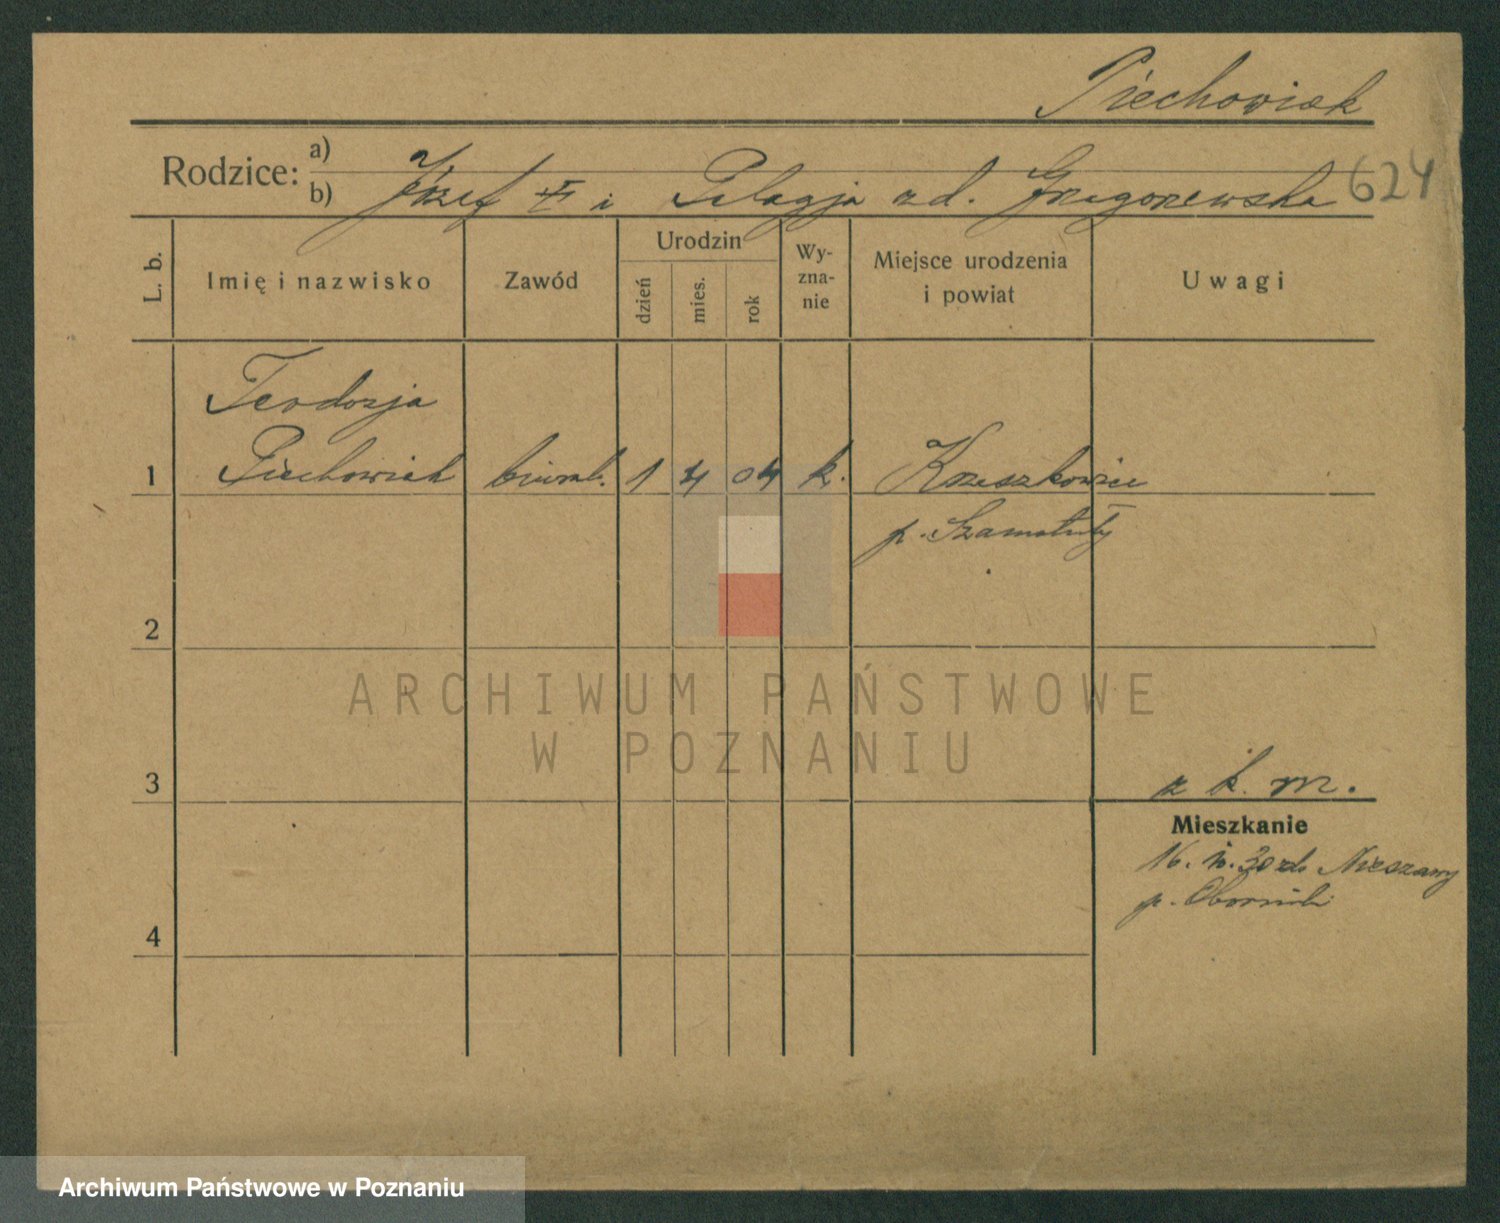 Piechowiak
Rodzice: a)
b) Józef i Pelagja zd. Grzegorzewska 624
L. b. Imię i nazwisko Zawód Urodzin dzień mies. rok Wyznanie Miejsce urodzenia i powiat Uwagi
Teodozja
1 Piechowiak biural. 1 4 04 k. Krzeszkowice
p. Szamotuły
2
ARCHIWUM PAŃSTWOWE
W POZNANIU
z k. m.
3
Mieszkanie
16. 30 do
p. Oborniki
4
Archiwum Państwowe w Poznaniu